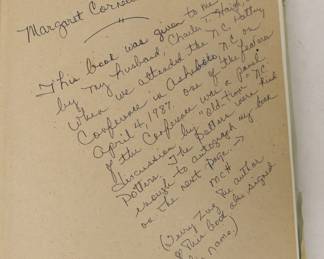 Margaret Corne
This book was given to me
by my husband, Charles T.
when we attended the N.C. Pottery
Conference in Asheboro, NC on
April 4, 1987. One of the features
of the Conference was a panel
discussion by "old-time" NC
Potters. The Potters were kind
enough to autograph my book
on the next page. →
MCH
(Terry Zug the author
of this book also signed
his name.)